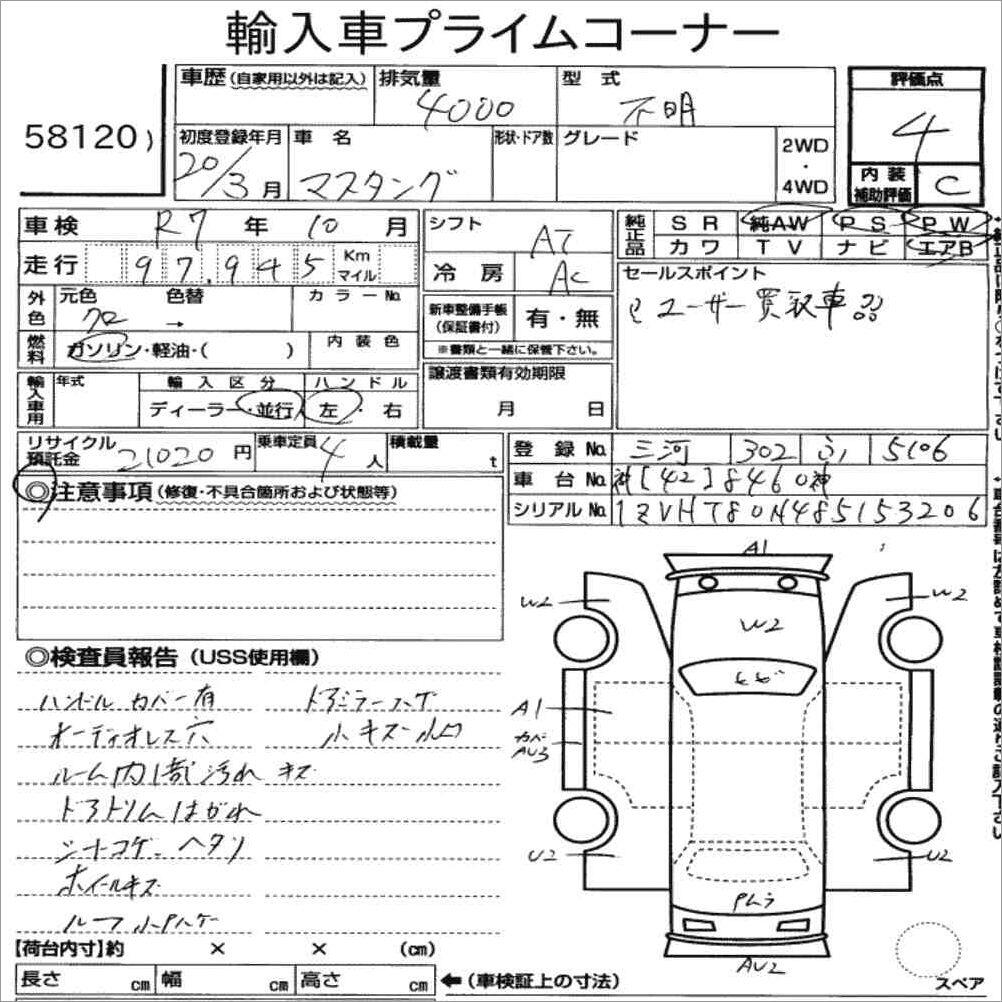 輸入車プライムコーナー
58120)
車歴(自家用以外は記入) 排気量 4000 型式 不明 評価点 4
初度登録年月 20/3月 車名 マスタング 形状・ドア数 グレード 2WD・4WD 内装補助評価 C
車検 R7年10月 シフト AT 純正品 SR 純AW PS PW
走行 97,945 Km マイル 冷房 AC カワ TV ナビ エアB
外色 元色 クロ 色替 → カラーNo.
燃料 ガソリン・軽油・( ) 内装色
新車整備手帳(保証書付) 有・無
※書類と一緒に保管下さい。
セールスポイント
ユーザー買取車
輸入車用 年式 輸入区分 ディーラー・並行 ハンドル 左・右
譲渡書類有効期限 月 日
リサイクル預託金 21020円 乗車定員 4人 積載量 t
登録No. 三河 302 ふ 5106
車台No. 神[42]8460神
シリアルNo. 1ZVHT80N485153206
◎注意事項(修復・不具合箇所および状態等)
◎検査員報告(USS使用欄)
ハンドルカバー有 ドアミラースレ
オーディオレス穴 小キズ・小凹
ルーム内1部汚れ キズ
ドアトリムはがれ
シートコゲ、ヘタリ
ホイールキズ
ルーフ小P
A1
W2
W2
W2
A1
カバ
AU3
U2
U2
Pムラ
AU2
スペア
【荷台内寸】約 × × (cm)
長さ cm 幅 cm 高さ cm ←(車検証上の寸法)